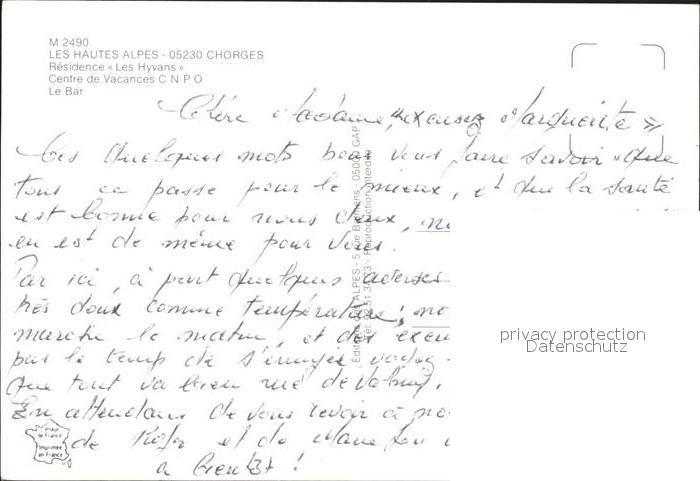 M 2490
LES HAUTES ALPES - 05230 CHORGES
Résidence « Les Hyvans »
Centre de Vacances C N P O
Le Bar
Chère Madame, "excusez Marguerite"
Ces quelques mots pour vous faire savoir que
tous ce passe pour le mieux, et que la santé
est bonne pour nous deux,
en est de même pour vous.
Par ici, à part quelques averses
très doux comme température;
marche le matin, et des
pas le temps de s'ennuyer
que tout va bien rue de Valmy.
En attendans de vous revoir à
de et de
a bientôt !
Éditions des ALPES - 5 rue - 05000 GAP
Reproduction interdite
Imprimée en France
privacy protection
Datenschutz